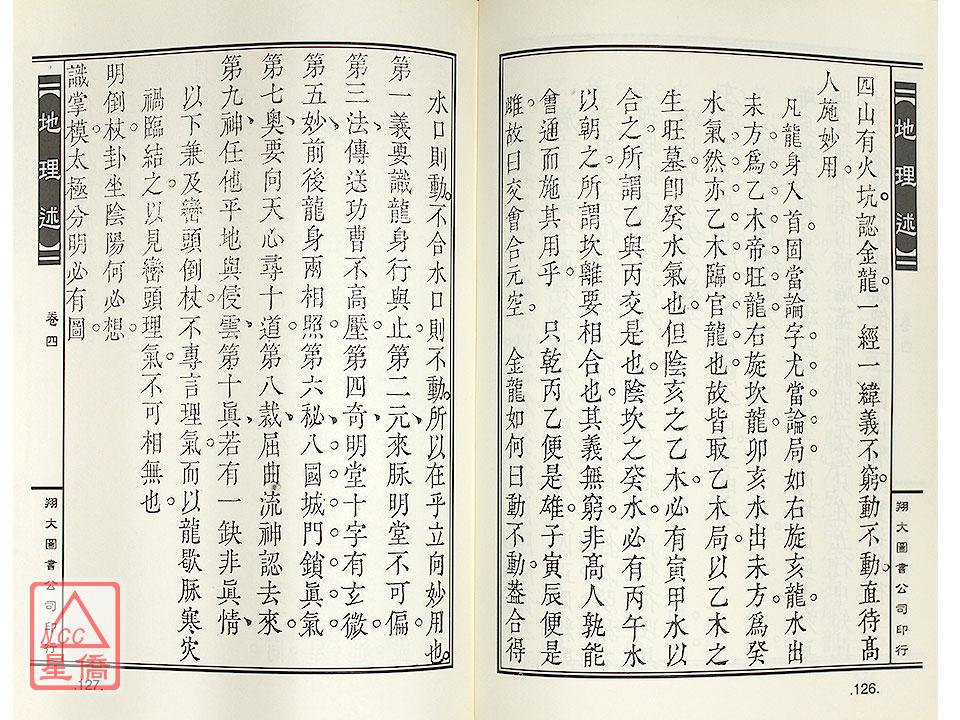 地理述
翔大圖書公司印行
四山有火坑。認金龍。一經一緯義不窮。動不動。直待高
人施妙用。
凡龍身入首。固當論字。尤當論局。如右旋亥龍。水出
未方。為乙木帝旺龍。右旋坎龍。卯亥水出未方。為癸
水氣。然亦乙木臨官龍也。故皆取乙木局。以乙木之
生旺墓。即癸水氣也。但陰亥之乙木。必有寅甲水以
合之。所謂乙與丙交是也。陰坎之癸水。必有丙午水
以朝之。所謂坎離要相合也。其義無窮。非高人孰能
會通而施其用乎。 只乾丙乙便是雄。子寅辰便是
雌。故曰交會合元空。 金龍如何曰動不動。蓋合得
.126.
水口則動。不合水口則不動。所以在乎立向妙用也。
第一義要識龍身行與止。第二元來脉明堂不可偏。
第三法傳送功曹不高壓。第四奇明堂十字有玄微。
第五妙前後龍身兩相照。第六秘八國城門鎖真氣。
第七奧要向天心尋十道。第八裁屈曲流神認去來。
第九神任他平地與侵雲。第十真若有一缺非真情。
以下兼及巒頭倒杖。不專言理氣。而以龍歇脉寒災
禍臨結之。以見巒頭理氣。不可相無也。
明倒杖。卦坐陰陽何必想。
識掌模。太極分明必有圖。
地理述
卷四
翔大圖書公司印行
.127.
NCC
星僑